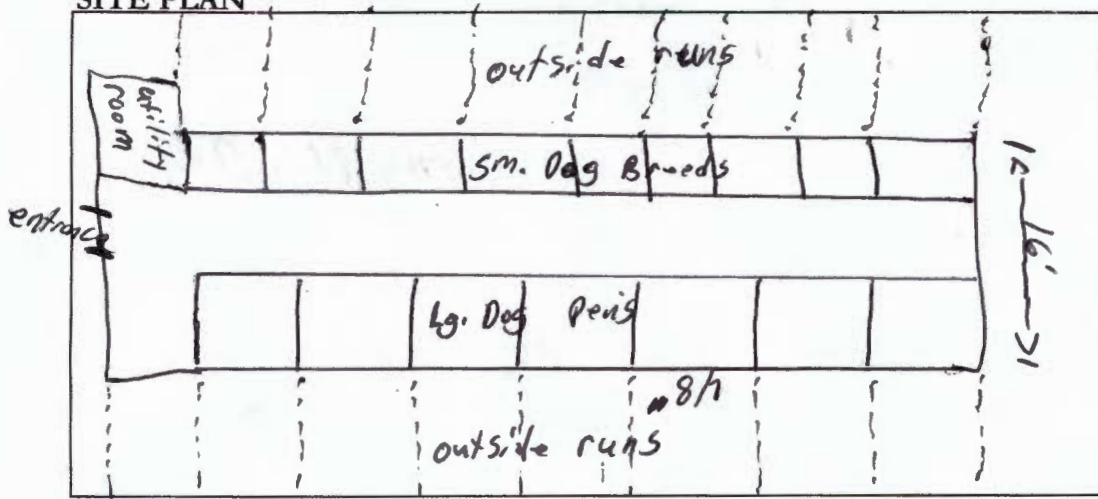 SITE PLAN
outside runs
utility
room
Sm. Dog Breeds
entrance
16'
Lg. Dog Pens
outside runs